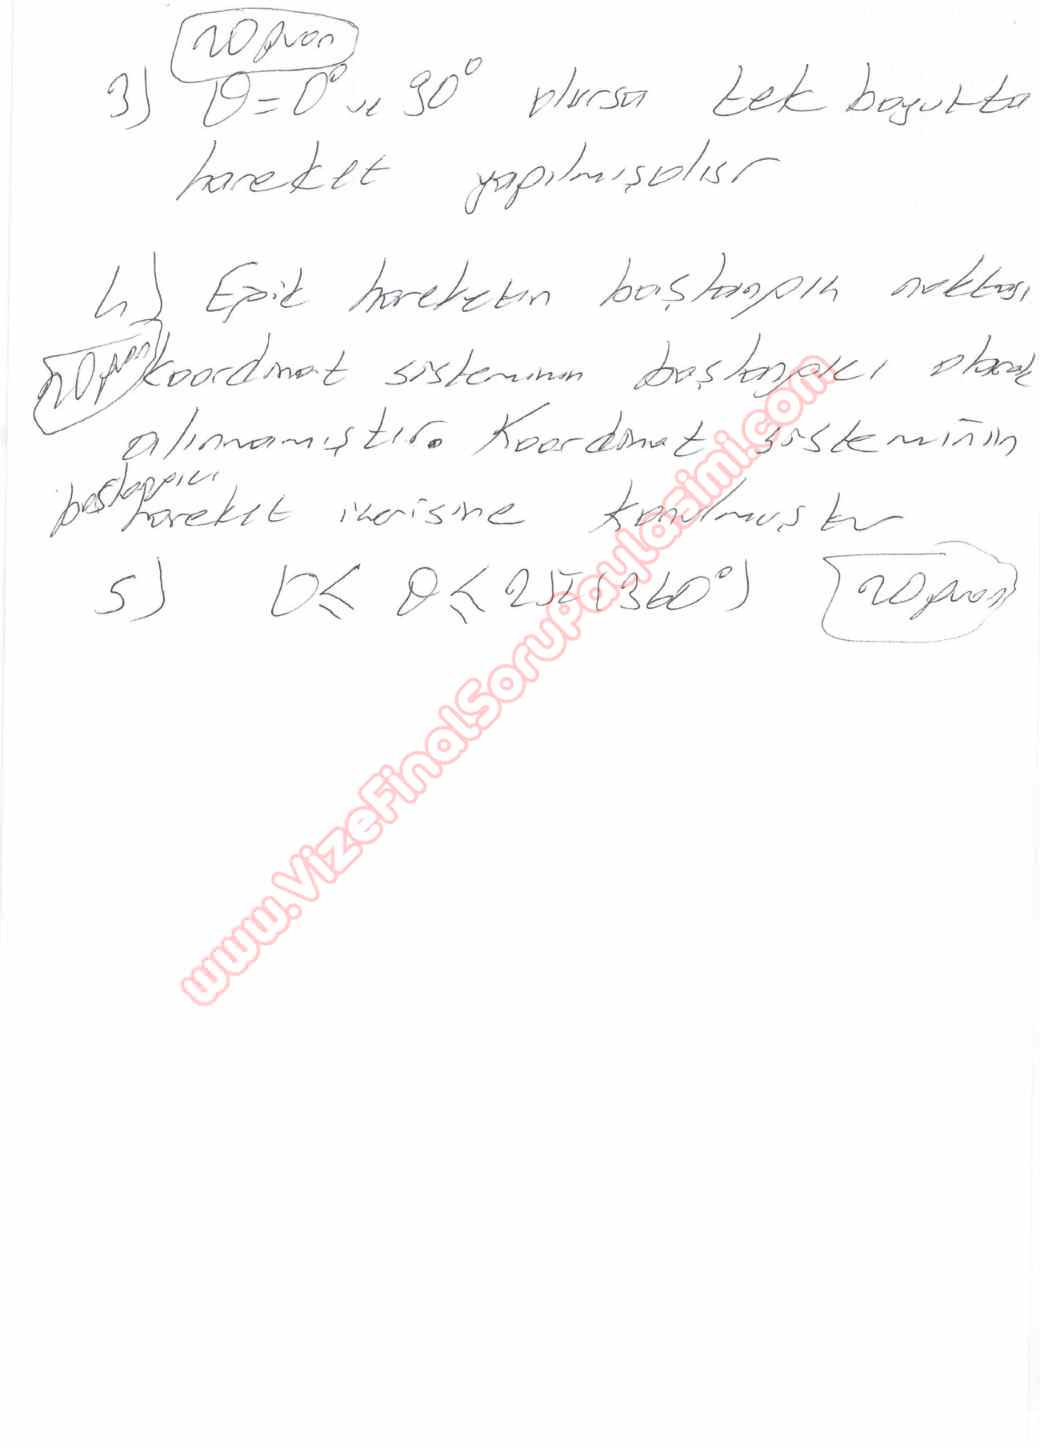 20 puan
3) θ=0° ve 90° olursa tek boyutta
hareket yapılmışolır
4) Eğik hareketin başlangıç noktası
20 puan koordinat sisteminin başlangıcı olarak
alınmamıştır. Koordinat sisteminin
başlangıcı
hareket içerisine konulmuştur
5) 0≤ θ ≤ 2π (360°) 20 puan
www.VizeFinalSoruPaylasimi.com